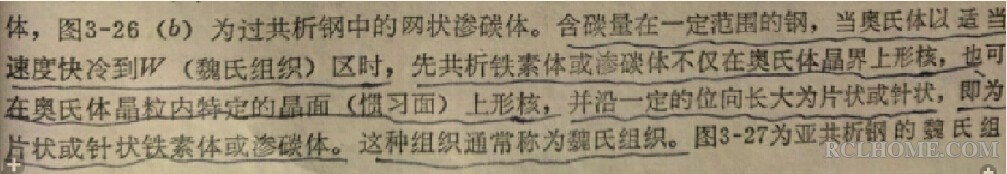 体，图3-26（b）为过共析钢中的网状渗碳体。含碳量在一定范围的钢，当奥氏体以适当
速度快冷到W（魏氏组织）区时，先共析铁素体或渗碳体不仅在奥氏体晶界上形核，也可
在奥氏体晶粒内特定的晶面（惯习面）上形核，并沿一定的位向长大为片状或针状，即为
片状或针状铁素体或渗碳体。这种组织通常称为魏氏组织。图3-27为亚共析钢的魏氏组
RCLHOME.COM